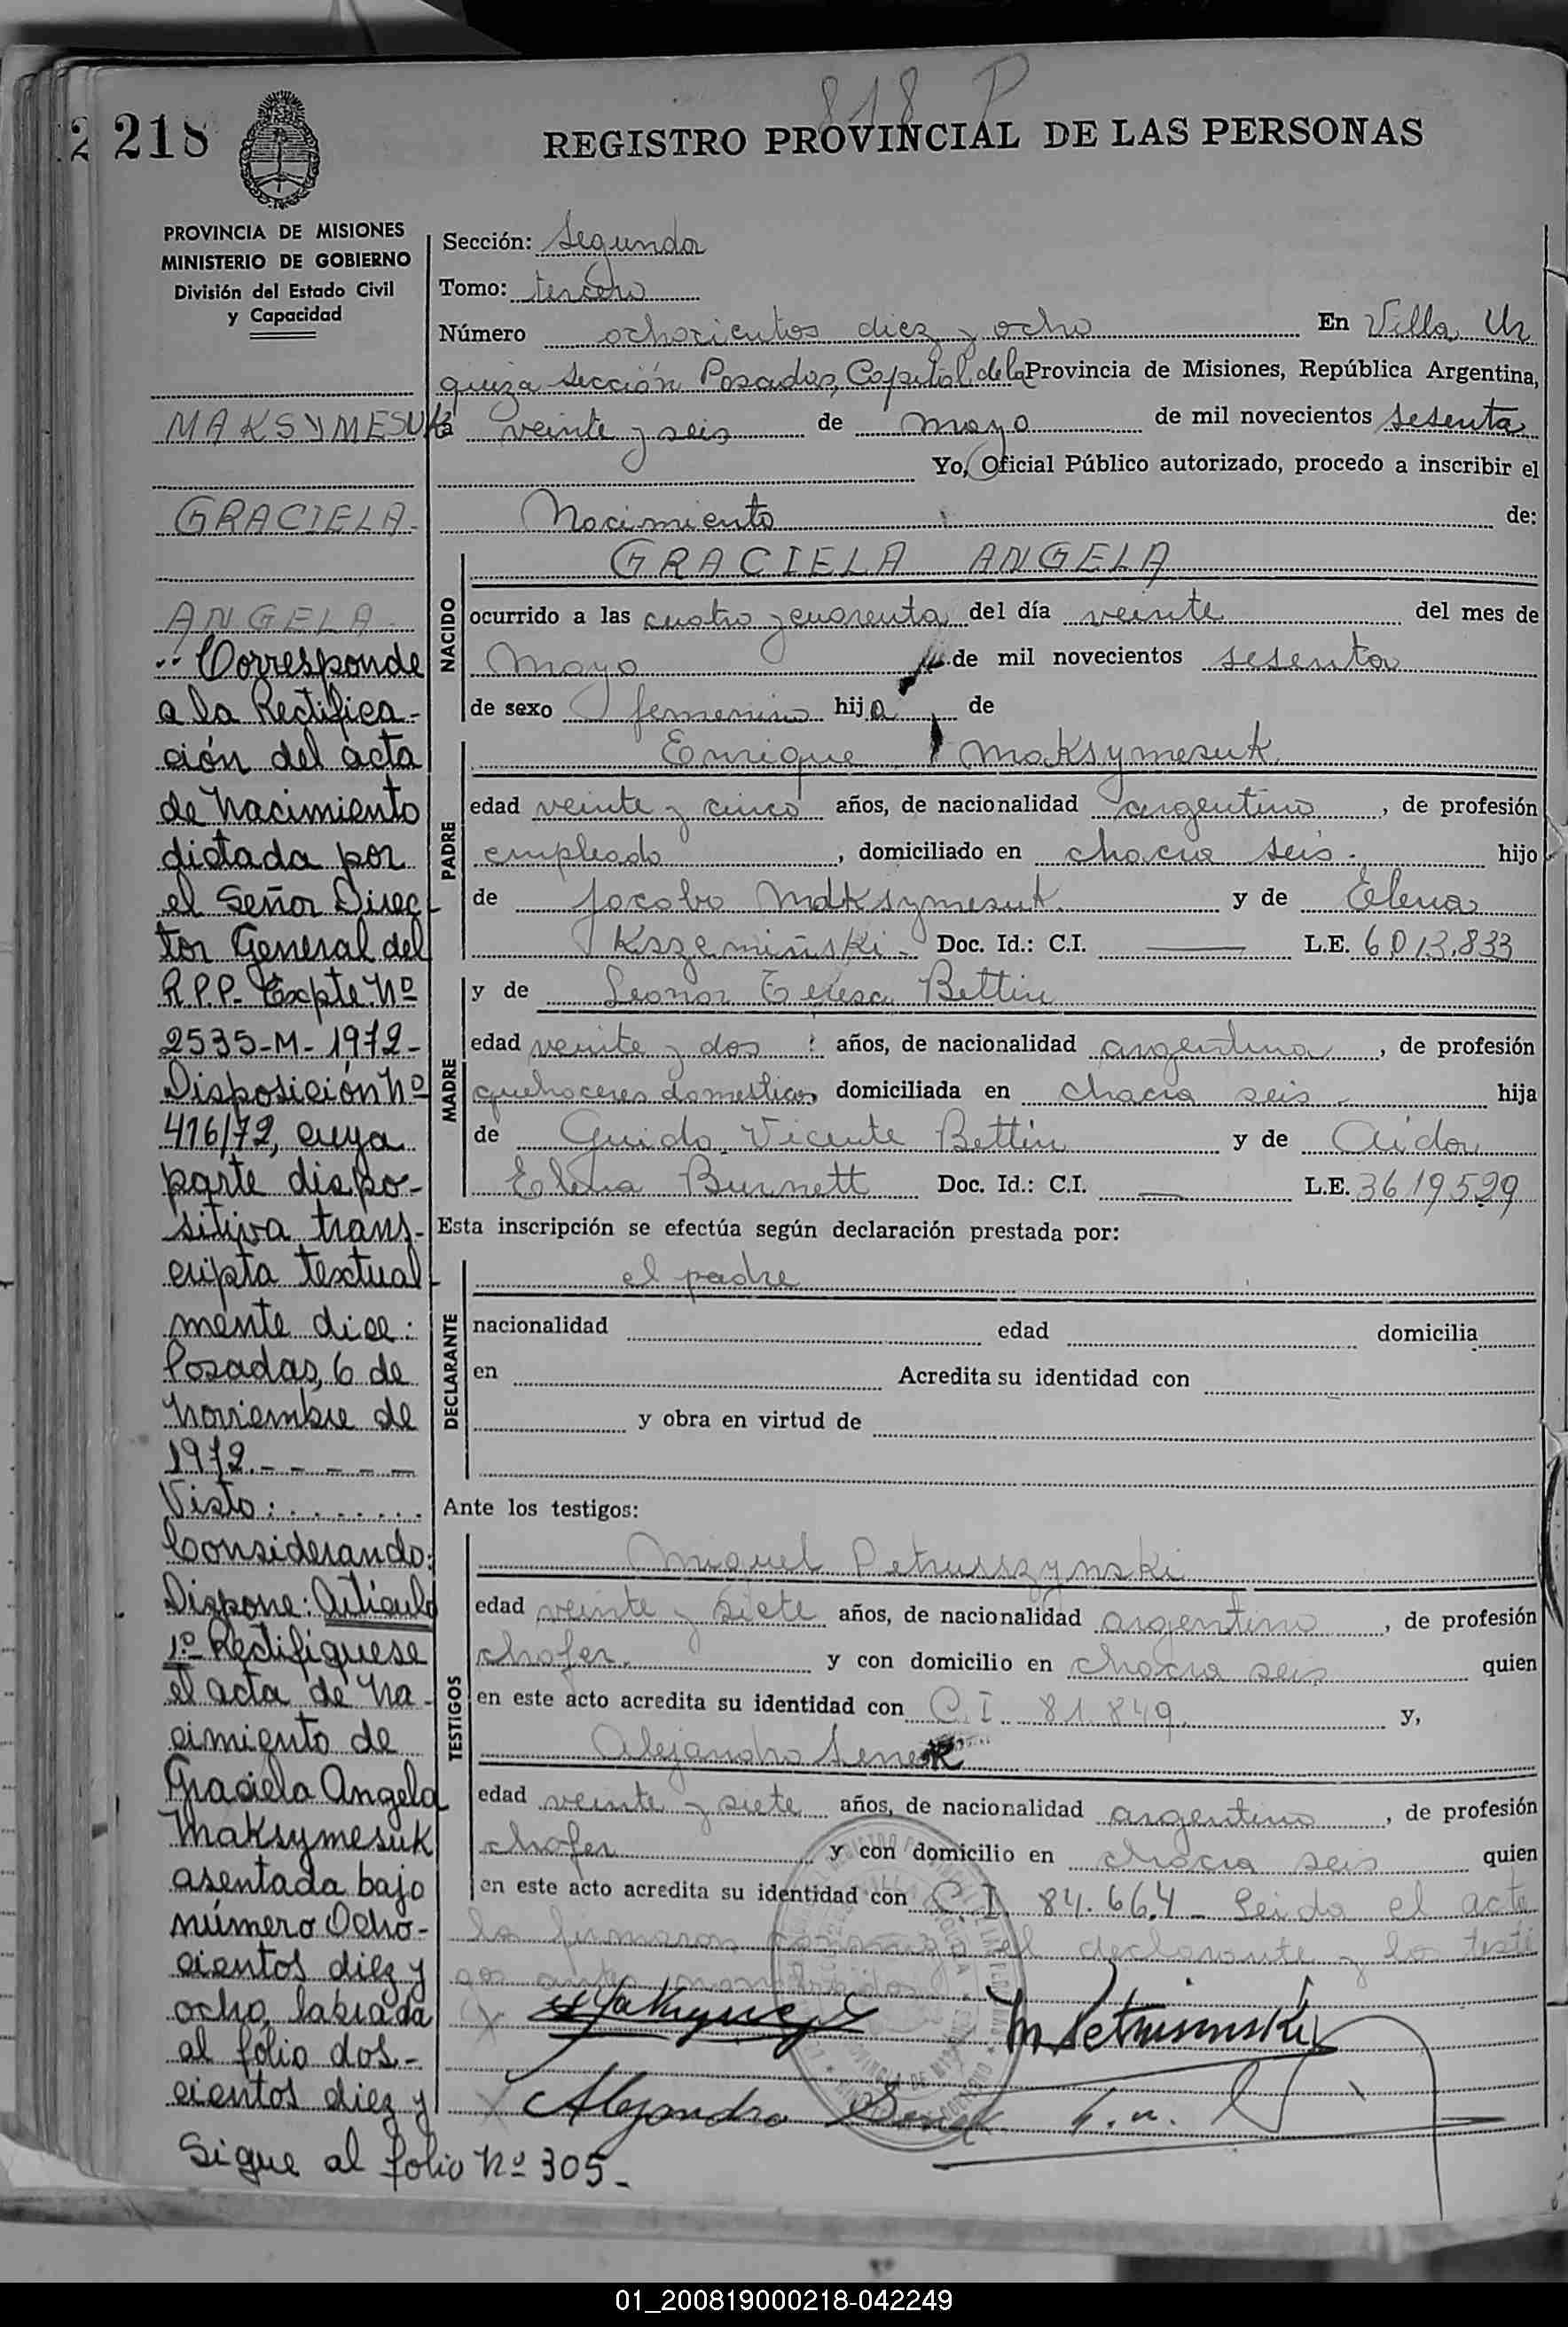 818 P
218
REGISTRO PROVINCIAL DE LAS PERSONAS
PROVINCIA DE MISIONES
MINISTERIO DE GOBIERNO
División del Estado Civil
y Capacidad
MAKSYMESUK
GRACIELA
ANGELA
Corresponde
a la Rectifica-
ción del acta
de Nacimiento
dictada por
el Señor Direc-
tor General del
R.P.P. Expte. Nº
2535-M-1972-
Disposición Nº
416/72, cuya
parte dispo-
sitiva trans-
cripta textual-
mente dice:
Posadas, 6 de
Noviembre de
1972.-----
Visto:........
Considerando:
Dispone: Artículo
1º Rectifíquese
el acta de Na-
cimiento de
Graciela Angela
Maksymesuk
asentada bajo
número Ocho-
cientos diez y
ocho, labrada
al folio dos-
cientos diez y
Sigue al folio Nº 305.-
Sección: Segunda
Tomo: tercero
Número ochocientos diez y ocho En Villa Ur
quiza Sección Posadas, Capital de la Provincia de Misiones, República Argentina,
a veinte y seis de mayo de mil novecientos sesenta
Yo, Oficial Público autorizado, procedo a inscribir el
Nacimiento de:
NACIDO
GRACIELA ANGELA
ocurrido a las cuatro y cuarenta del día veinte del mes de
Mayo de mil novecientos sesenta
de sexo femenino hija de
PADRE
Enrique Maksymesuk
edad veinte y cinco años, de nacionalidad argentino, de profesión
empleado, domiciliado en chacra seis. hijo
de Jacobo Maksymesuk y de Elena
Kszemiñski - Doc. Id.: C.I. —— L.E. 6.013.833
MADRE
y de Leonor Teresa Bettin
edad veinte y dos años, de nacionalidad argentina, de profesión
quehaceres domesticos domiciliada en chacra seis - hija
de Guido Vicente Bettin y de Aida
Elena Burnett Doc. Id.: C.I. — L.E. 3619529
Esta inscripción se efectúa según declaración prestada por:
DECLARANTE
el padre
nacionalidad edad domicilia
en Acredita su identidad con
y obra en virtud de
Ante los testigos:
TESTIGOS
Miguel Petruszynski
edad veinte y siete años, de nacionalidad argentino, de profesión
chofer. y con domicilio en chacra seis quien
en este acto acredita su identidad con C.I. 81.849. y,
Alejandro Senek
edad veinte y siete años, de nacionalidad argentino, de profesión
chofer y con domicilio en chacra seis quien
en este acto acredita su identidad con C.I 84.664 - Leida el acta
la firmaron conmigo el declarante y los testi
gos antes nombrados
Alejandro Senek
01_200819000218-042249